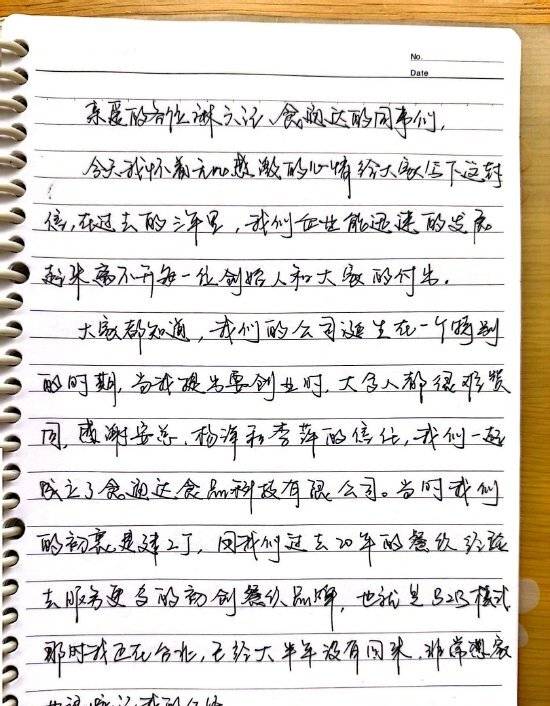 No.
Date
亲爱的各位谢六记、食通达的同事们，
今天我怀着无比感激的心情给大家写下这封
信，在过去的三年里，我们企业能迅速的发展
起来离不开每一位创始人和大家的付出。
大家都知道，我们的公司诞生在一个特别
的时期，当我提出要创业时，大多人都很难赞
同，感谢安总，杨洋和李萍的信任，我们一起
成立了食通达食品科技有限公司。当时我们
的初衷是建工厂，因我们过去20年的餐饮经验
去服务更多的初创餐饮品牌，也就是B2B模式
那时我还在台北，已经大半年没有回来，非常想家